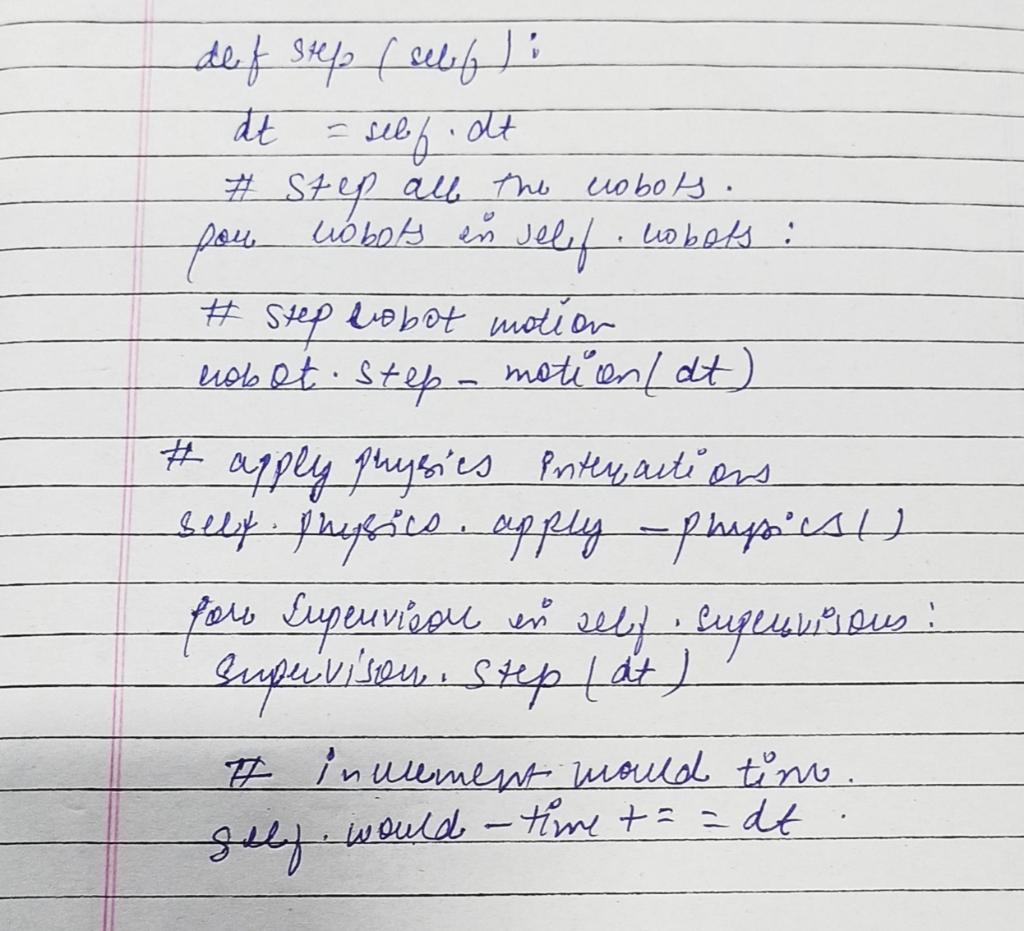 def step (self):
dt = self.dt
# Step all the robots.
for robots in self.robots:
# step robot motion
robot.step_motion(dt)
# apply physics interactions
self.physics.apply_physics()
for supervisor in self.supervisors:
supervisor.step(dt)
# increment world time.
self.world_time += = dt.